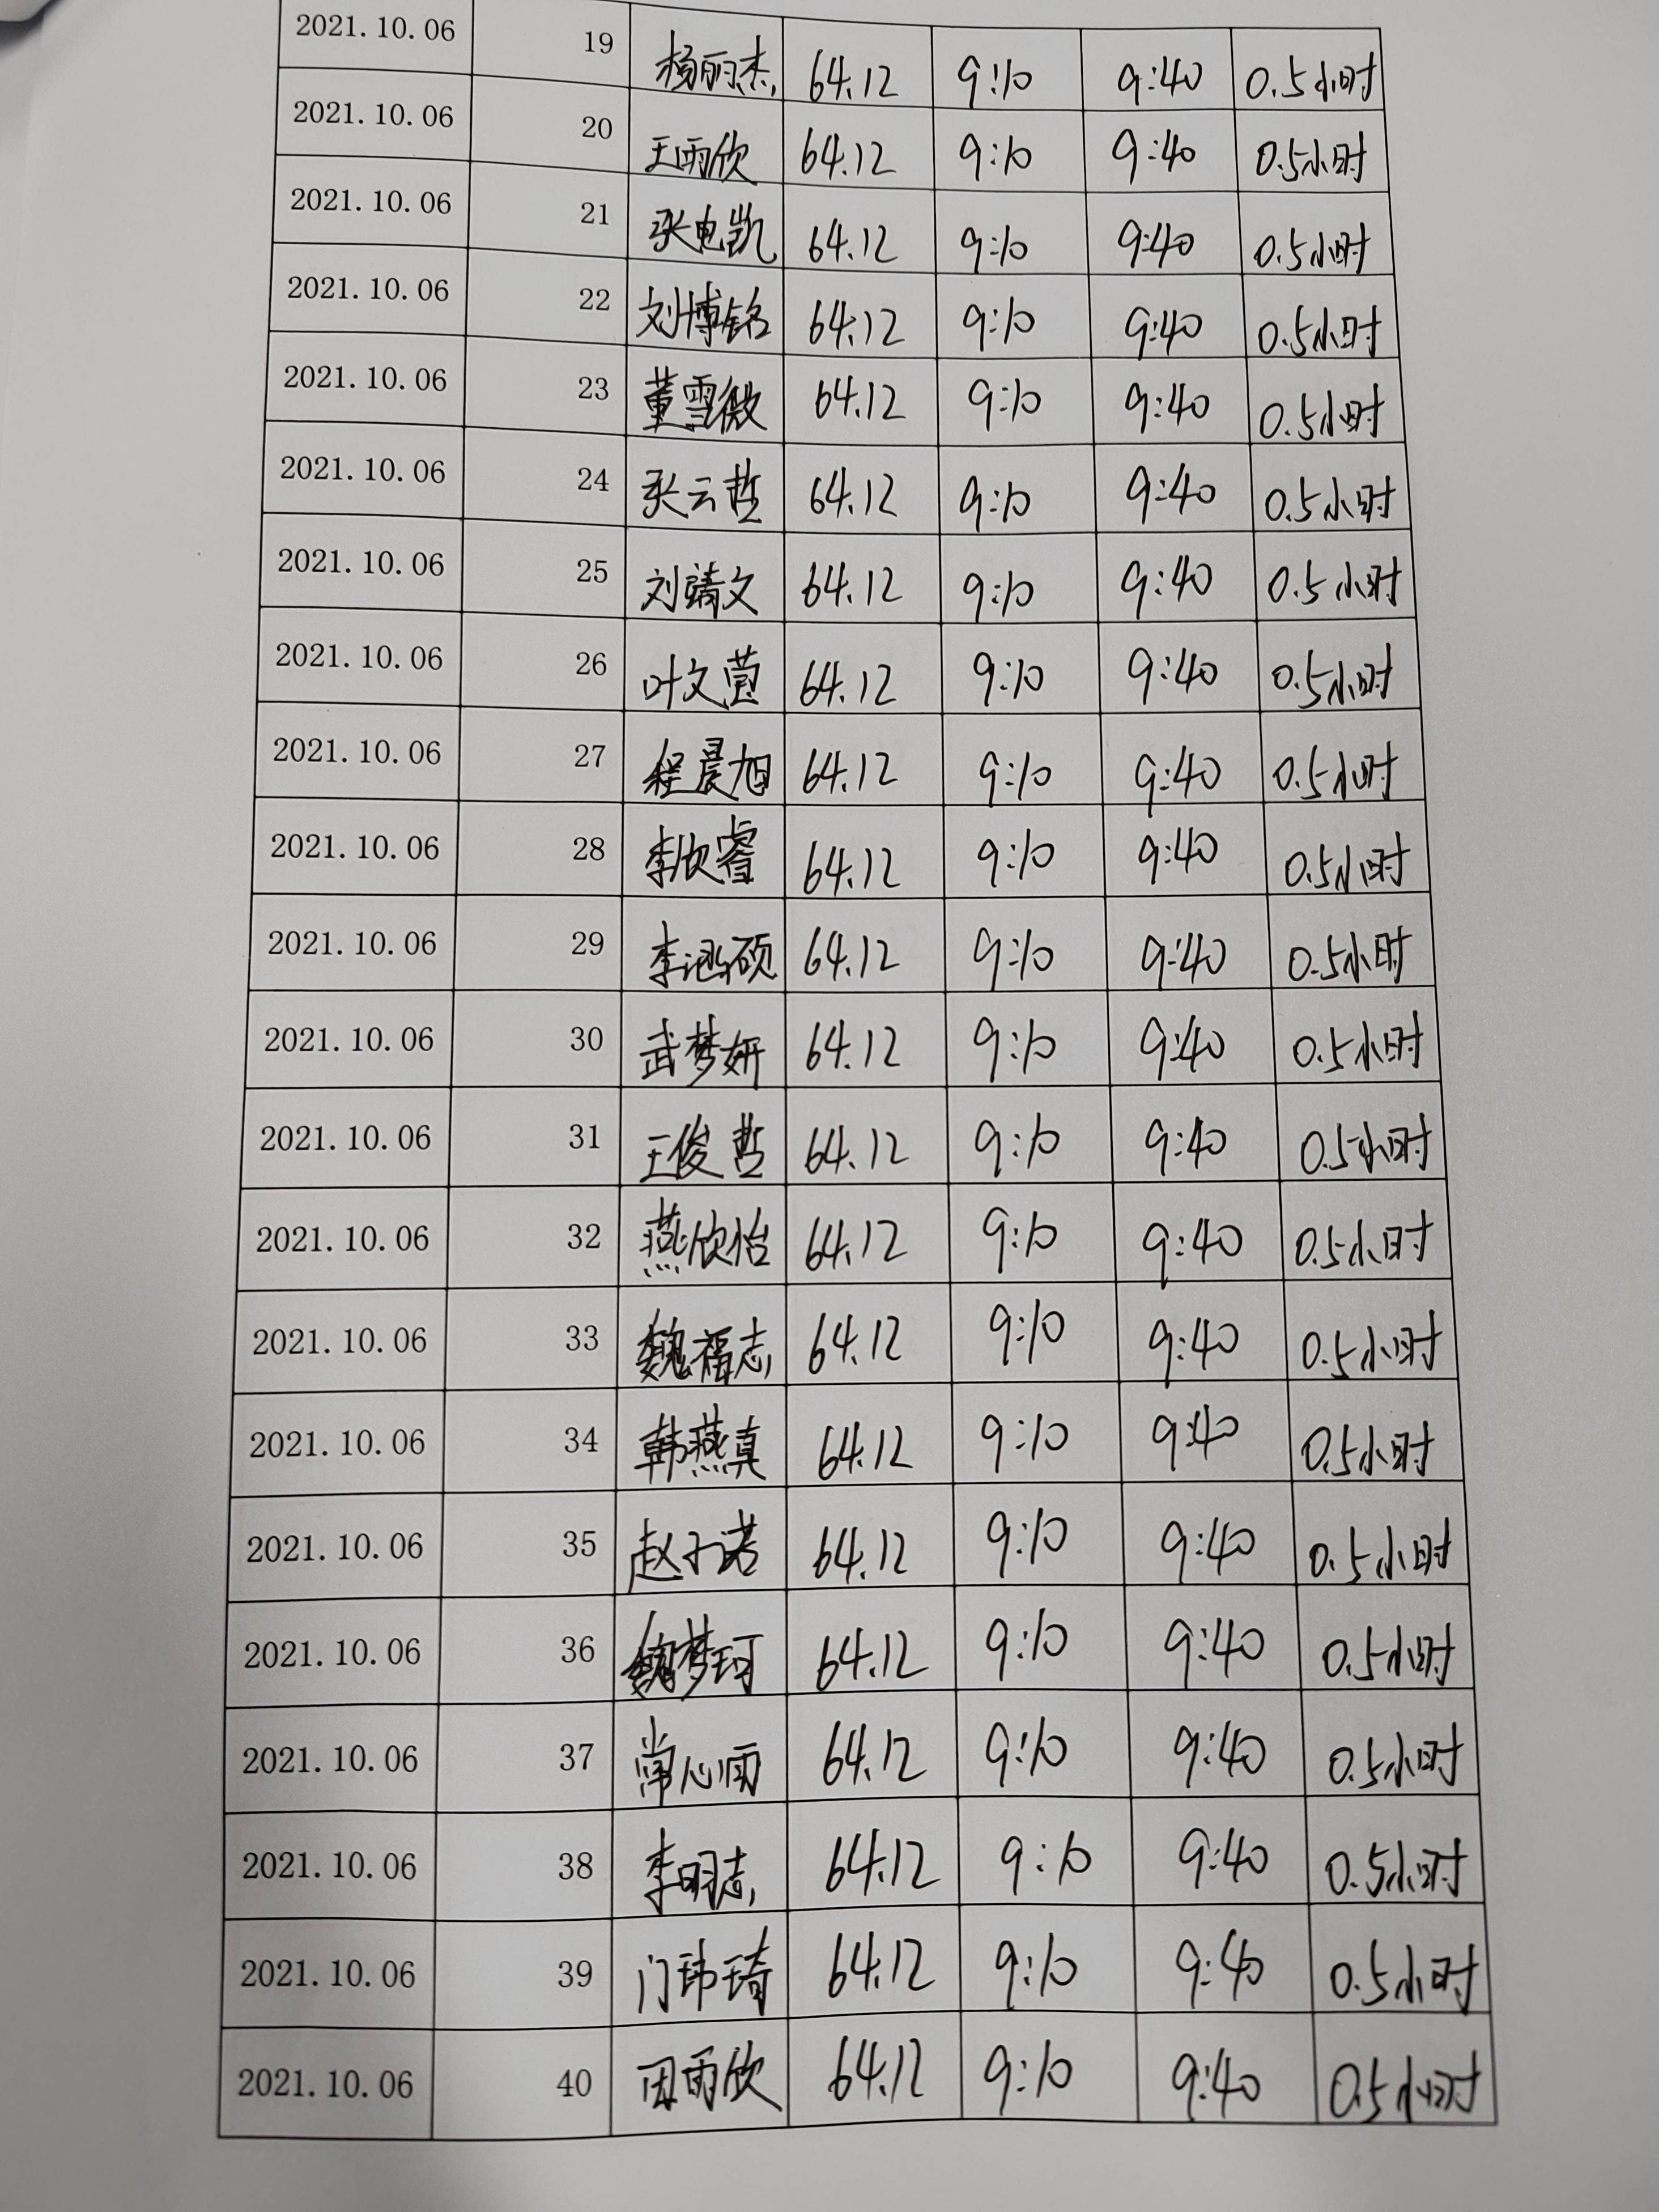 2021.10.06 19 杨丽杰 64.12 9:10 9:40 0.5小时
2021.10.06 20 王雨欣 64.12 9:10 9:40 0.5小时
2021.10.06 21 张电凯 64.12 9:10 9:40 0.5小时
2021.10.06 22 刘博铭 64.12 9:10 9:40 0.5小时
2021.10.06 23 董雪微 64.12 9:10 9:40 0.5小时
2021.10.06 24 张云哲 64.12 9:10 9:40 0.5小时
2021.10.06 25 刘靖文 64.12 9:10 9:40 0.5小时
2021.10.06 26 叶文萱 64.12 9:10 9:40 0.5小时
2021.10.06 27 程晨旭 64.12 9:10 9:40 0.5小时
2021.10.06 28 李欣睿 64.12 9:10 9:40 0.5小时
2021.10.06 29 64.12 9:10 9:40 0.5小时
2021.10.06 30 武梦妍 64.12 9:10 9:40 0.5小时
2021.10.06 31 王俊哲 64.12 9:10 9:40 0.5小时
2021.10.06 32 燕欣怡 64.12 9:10 9:40 0.5小时
2021.10.06 33 魏福志 64.12 9:10 9:40 0.5小时
2021.10.06 34 韩燕真 64.12 9:10 9:40 0.5小时
2021.10.06 35 赵子诺 64.12 9:10 9:40 0.5小时
2021.10.06 36 魏梦珂 64.12 9:10 9:40 0.5小时
2021.10.06 37 常心雨 64.12 9:10 9:40 0.5小时
2021.10.06 38 李明志 64.12 9:10 9:40 0.5小时
2021.10.06 39 门玮琦 64.12 9:10 9:40 0.5小时
2021.10.06 40 田雨欣 64.12 9:10 9:40 0.5小时